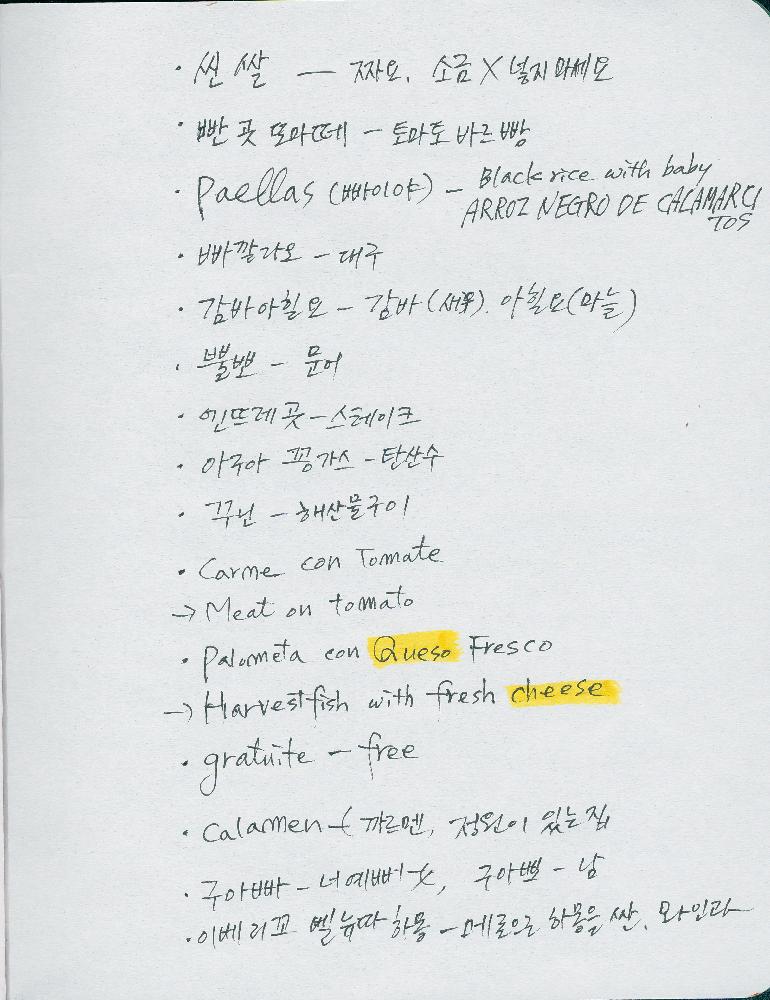 · 씬 쌀 — 짜요. 소금 X 넣지 마세요
· 빤 곳 또마떼 - 토마토 바르 빵
· Paellas (빠이야) - Black rice with baby
ARROZ NEGRO DE CALAMARCI
TOS
· 빠깔라오 - 대구
· 감바아힐요 - 감바(새우). 아힐요(마늘)
· 뿔뽀 - 문어
· 엔뜨레곳 - 스테이크
· 아구아 꽁가스 - 탄산수
· 꾸닌 - 해산물구이
· Carme con Tomate
→ Meat on tomato
· Palometa con Queso Fresco
→ Harvestfish with fresh cheese
· gratuite - free
· Calamen - ( 까르멘, 정원이 있는 집
· 구아빠 - 너 예뻐 女, 구아뽀 - 남
· 이베리꼬 벨뉴따 하몽 - 메로으로 하몽을 싼, 와인과